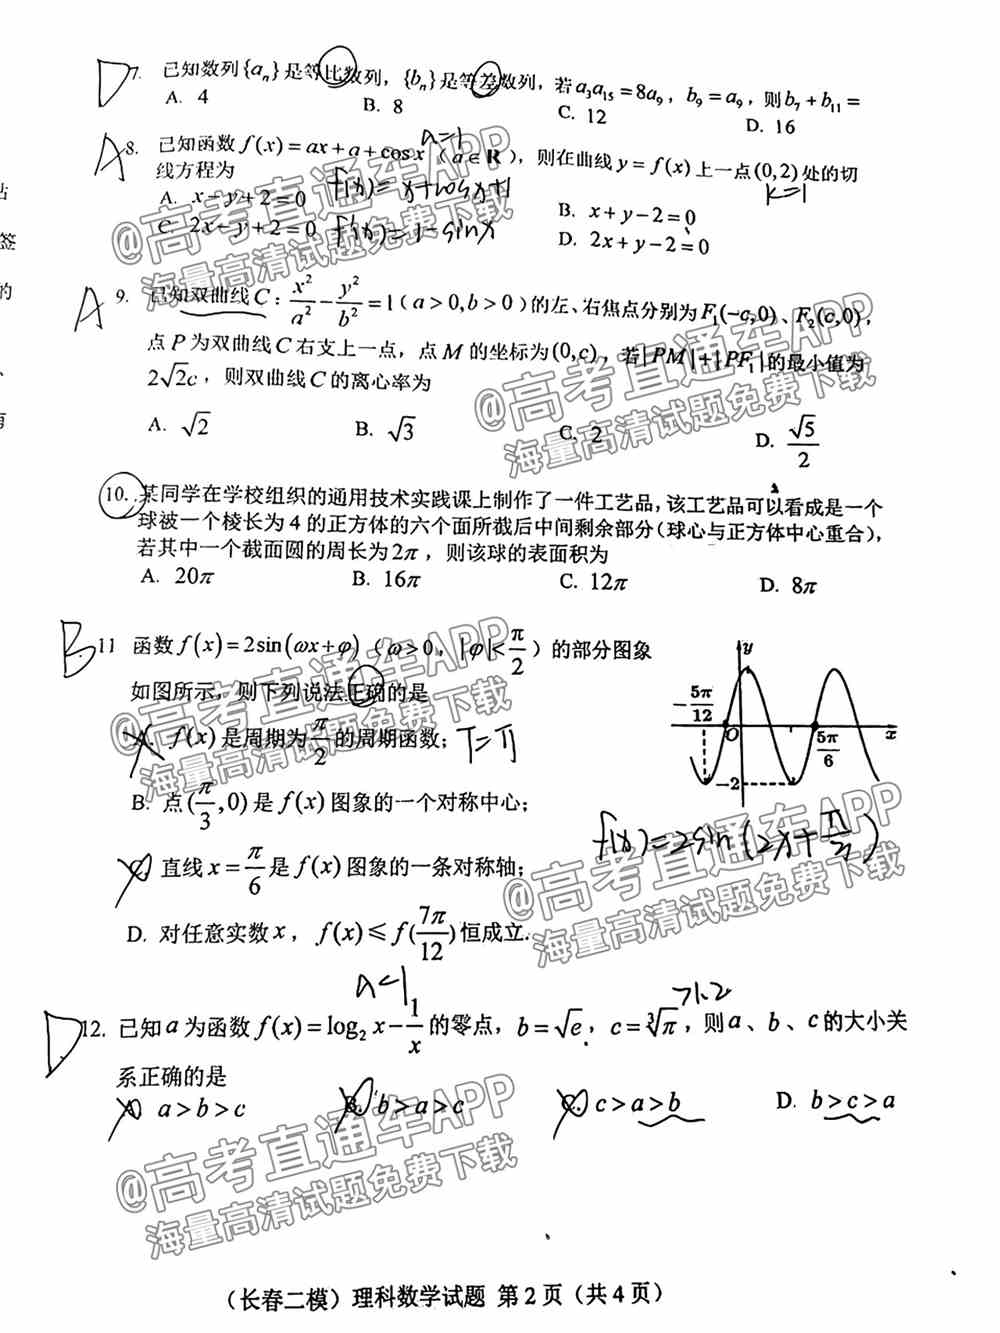 D
7. 已知数列{aₙ}是等比数列，{bₙ}是等差数列，若a₃a₁₅=8a₉，b₉=a₉，则b₇+b₁₁=
A. 4 B. 8 C. 12 D. 16
A
a=1
8. 已知函数f(x)=ax+a+cosx（a∈R），则在曲线y=f(x)上一点(0,2)处的切
线方程为
k=1
A. x-y+2=0 B. x+y-2=0
f(x)=x+cosx+1
C. 2x-y+2=0 D. 2x+y-2=0
f'(x)=1-sinx
@高考直通车APP
海量高清试题免费下载
站
签
的
A
9. 已知双曲线C：x²/a²-y²/b²=1（a>0,b>0）的左、右焦点分别为F₁(-c,0)、F₂(c,0)，
点P为双曲线C右支上一点，点M的坐标为(0,c)，若|PM|+|PF₁|的最小值为
2√2c，则双曲线C的离心率为
A. √2 B. √3 C. 2 D. √5/2
@高考直通车APP
海量高清试题免费下载
10. 某同学在学校组织的通用技术实践课上制作了一件工艺品，该工艺品可以看成是一个
球被一个棱长为4的正方体的六个面所截后中间剩余部分（球心与正方体中心重合），
若其中一个截面圆的周长为2π，则该球的表面积为
A. 20π B. 16π C. 12π D. 8π
B
11 函数f(x)=2sin(ωx+φ)（ω>0，|φ|<π/2）的部分图象
如图所示，则下列说法正确的是
A. f(x)是周期为π/2的周期函数；
T=π
B. 点(π/3,0)是f(x)图象的一个对称中心；
C. 直线x=π/6是f(x)图象的一条对称轴；
D. 对任意实数x，f(x)≤f(7π/12)恒成立.
y
-5π/12
O
5π/6
x
-2
@高考直通车APP
海量高清试题免费下载
@高考直通车APP
海量高清试题免费下载
a<1
>1.2
D
12. 已知a为函数f(x)=log₂x-1/x的零点，b=√e，c=∛π，则a、b、c的大小关
系正确的是
A. a>b>c B. b>a>c C. c>a>b D. b>c>a
@高考直通车APP
海量高清试题免费下载
（长春二模）理科数学试题 第2页（共4页）